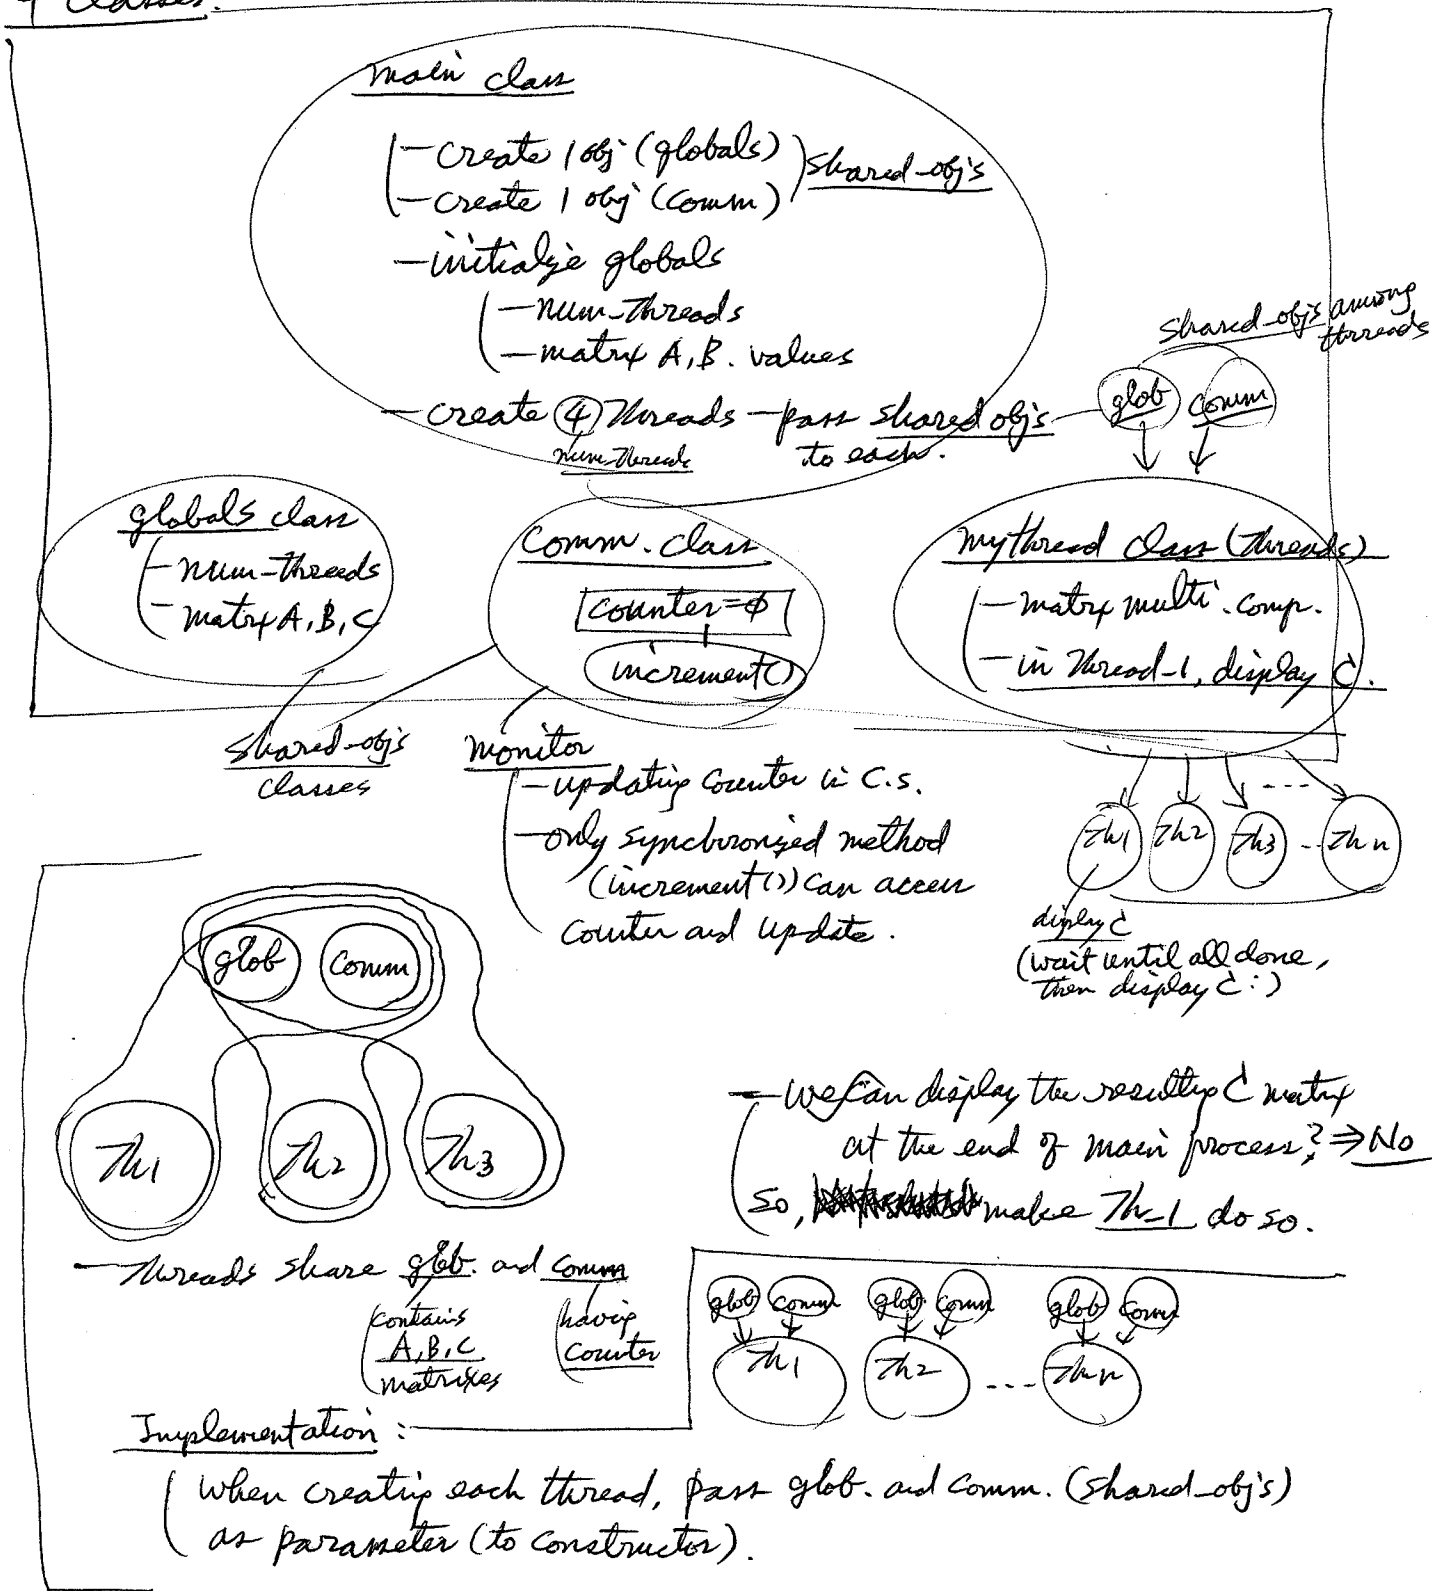 4 classes.
main class
- create 1 obj (globals)
- create 1 obj (comm)
shared-obj's
- initialize globals
- num-threads
- matrix A, B. values
- create 4 Threads - pass shared obj's
num-threads
to each.
shared-obj's among
threads
glob comm
globals class
- num-threads
- matrix A, B, C
Comm. class
counter=φ
increment()
mythread class (threads)
- matrix multi. comp.
- in Thread-1, display C.
shared-obj's
classes
Monitor
- updating counter in C.S.
- only synchronized method
(increment()) can access
counter and update.
Th1 Th2 Th3 ... Th n
display C
(wait until all done,
then display C:)
glob comm
Th1 Th2 Th3
- We can display the resulting C matrix
at the end of main process? ⇒ No
so, make Th-1 do so.
- Threads share glob. and comm
contains
A, B, C
matrixes
having
counter
glob comm glob comm glob comm
Th1 Th2 ... Th n
Implementation :
When creating each thread, pass glob. and comm. (shared-obj's)
as parameter (to constructor).